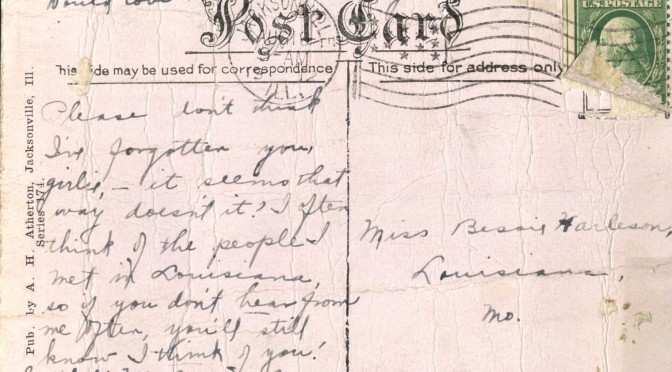 would love
Post Card
This side may be used for correspondence
This side for address only
U.S. POSTAGE
Pub. by A. H. Atherton, Jacksonville, Ill.
Series 174.
ILL.
Please don't think
I've forgotten you,
girlie, – it seems that
way doesn't it? I often
think of the people I
met in Louisiana,
so if you don't hear from
me often, you'll still
know I think of you!
Miss Bessie Harleson,
Louisiana,
Mo.